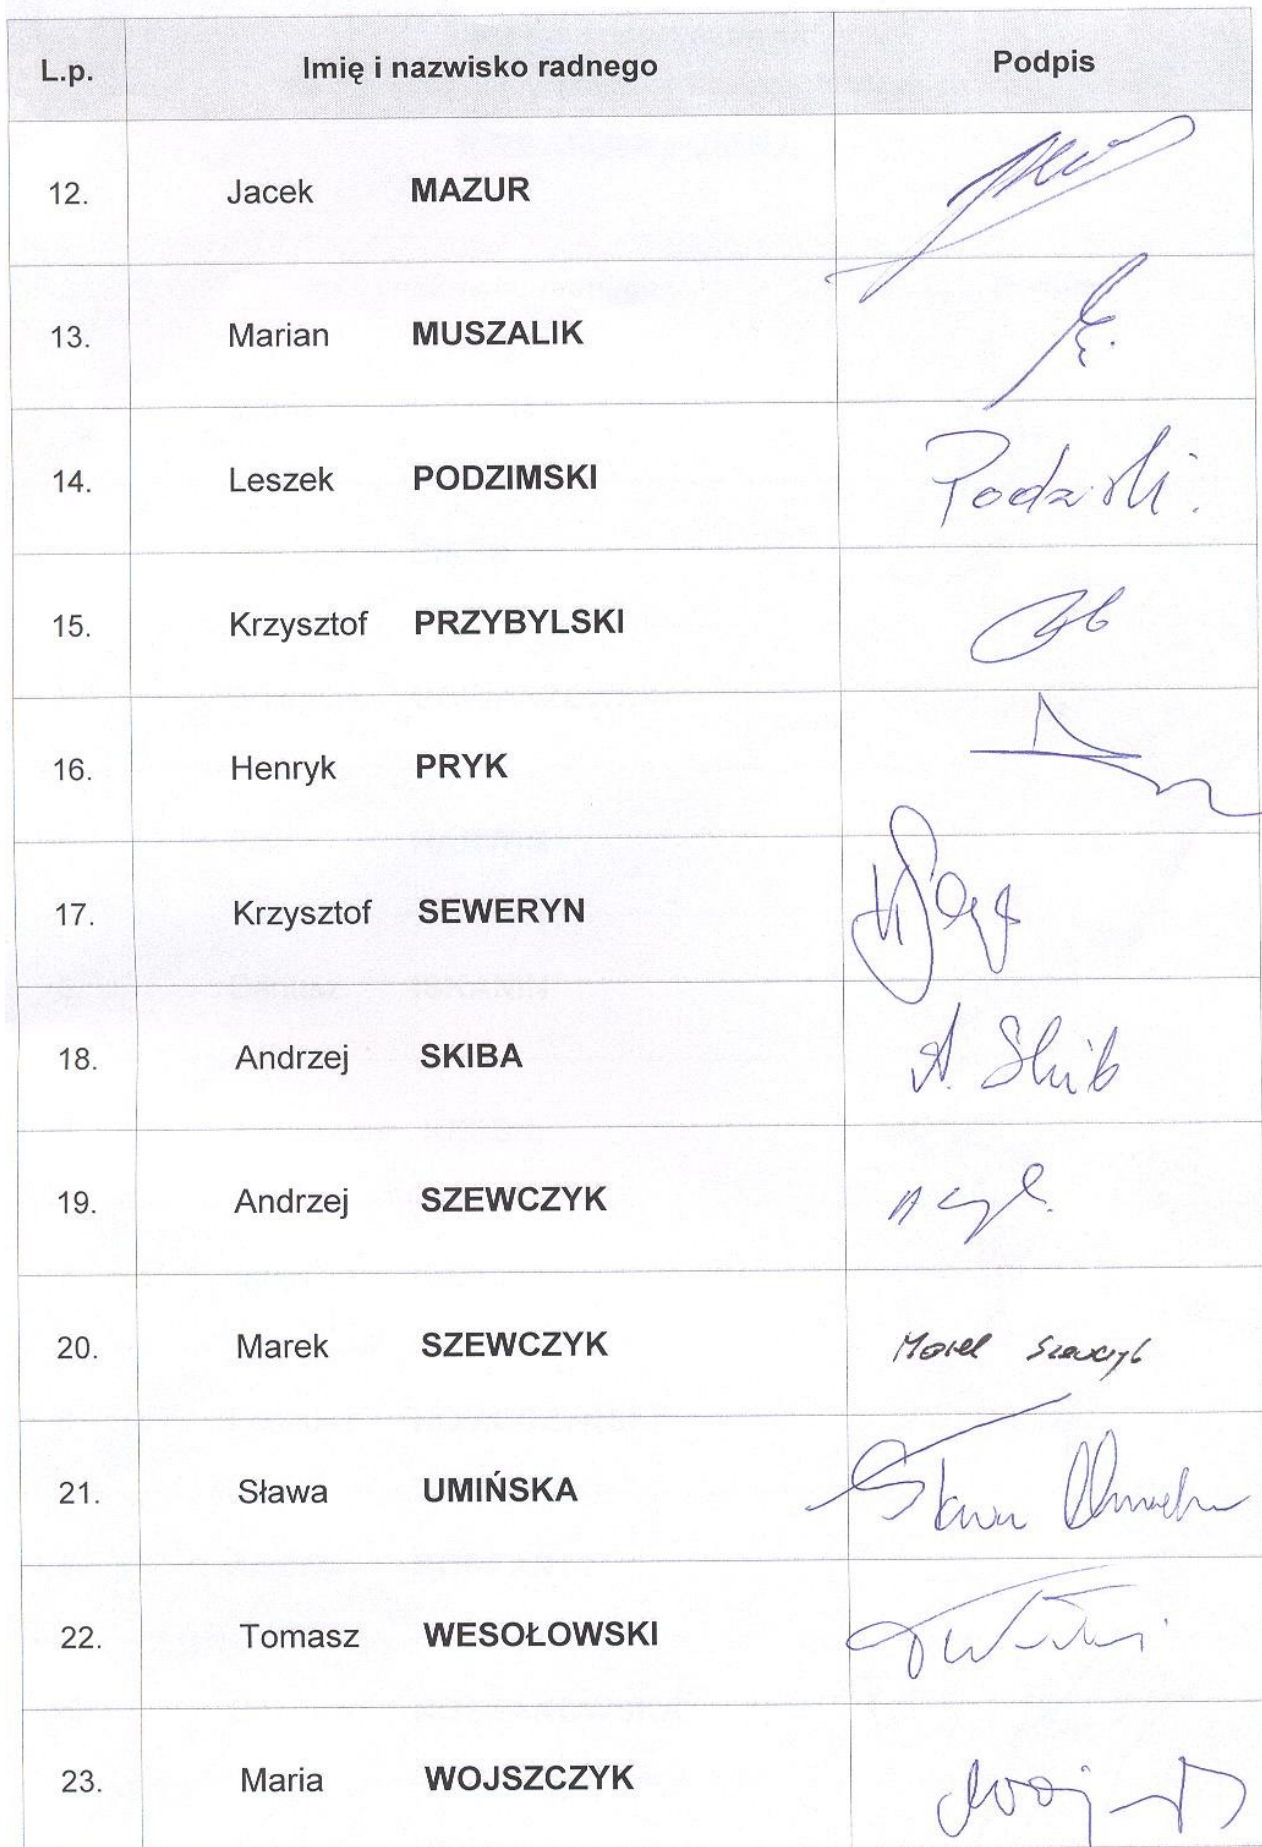 L.p. Imię i nazwisko radnego Podpis
12. Jacek MAZUR
13. Marian MUSZALIK
14. Leszek PODZIMSKI
15. Krzysztof PRZYBYLSKI
16. Henryk PRYK
17. Krzysztof SEWERYN
18. Andrzej SKIBA A. Skib
19. Andrzej SZEWCZYK
20. Marek SZEWCZYK Marek Szewczyk
21. Sława UMIŃSKA Sława
22. Tomasz WESOŁOWSKI
23. Maria WOJSZCZYK